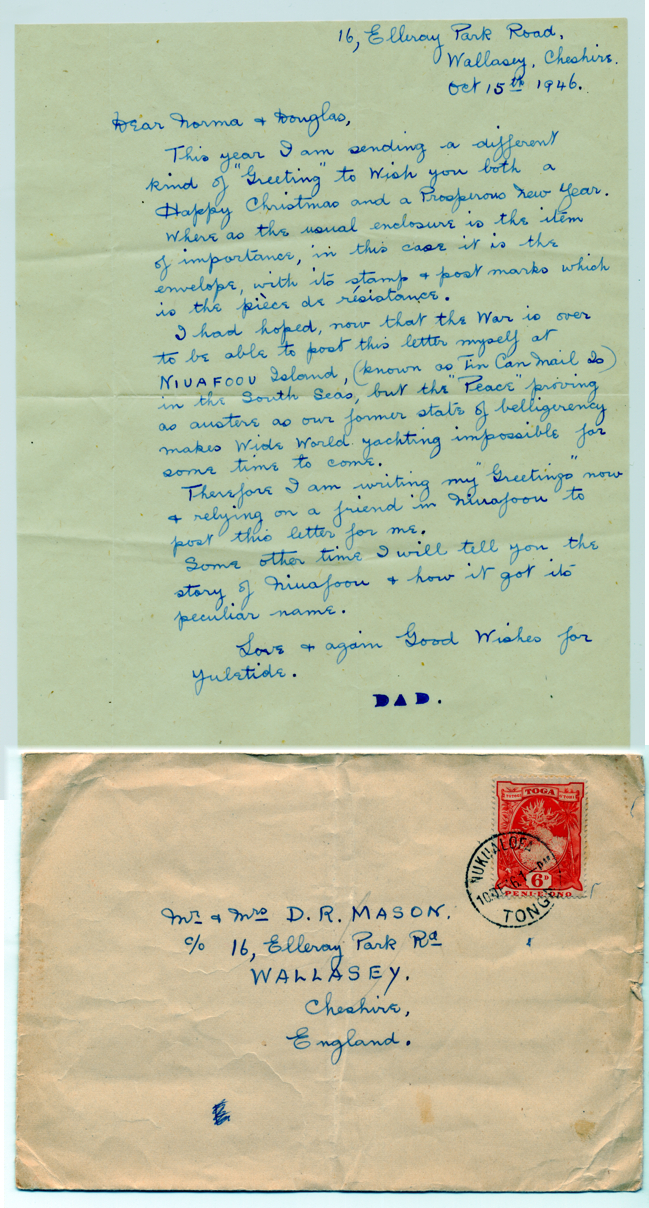 16, Elleray Park Road,
Wallasey, Cheshire.
Oct 15th 1946.
Dear Norma & Douglas,
This year I am sending a different
kind of "Greeting" to Wish you both a
Happy Christmas and a Prosperous New Year.
Where as the usual enclosure is the item
of importance, in this case it is the
envelope, with its stamp & post marks which
is the pièce de résistance.
I had hoped, now that the War is over
to be able to post this letter myself at
NIUAFOOU Island, (known as Tin Can Mail Is)
in the South Seas, but the "Peace" proving
as austere as our former state of belligerency
makes Wide World yachting impossible for
some time to come.
Therefore I am writing my "Greetings" now
& relying on a friend in Niuafoou to
post this letter for me.
Some other time I will tell you the
story of Niuafoou & how it got its
peculiar name.
Love & again Good Wishes for
Yuletide.
DAD.
TOGA
6D
PENI E ONO
NUKUALOFA
TONGA
Mr. & Mrs D. R. MASON.
c/o 16, Elleray Park Rd
WALLASEY.
Cheshire,
England.